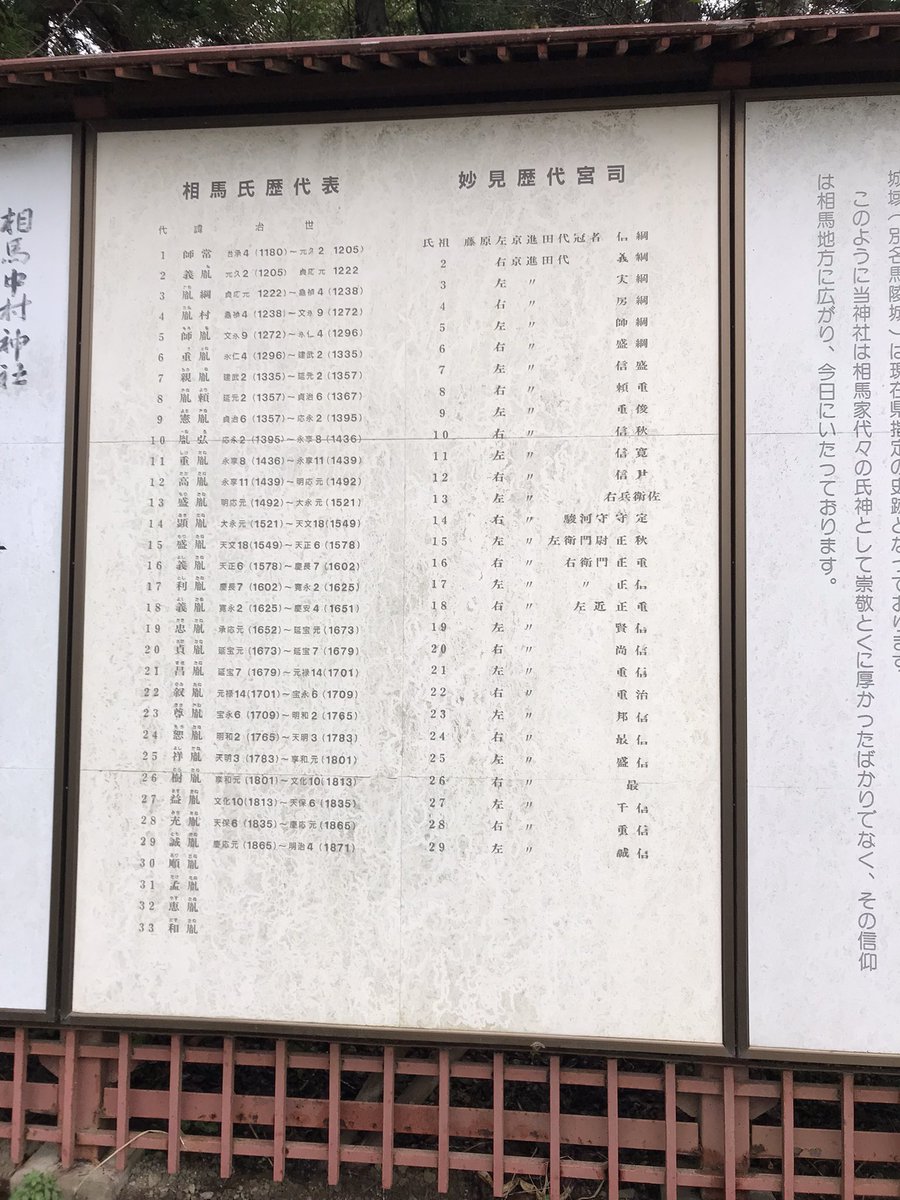 相馬中村神社
相馬氏歴代表
代 諱 治世
1 師常 治承4(1180)～元久2 1205)
2 義胤 元久2(1205) 貞応元 1222
3 胤綱 貞応元 1222)～嘉禎4(1238)
4 胤村 嘉禎4(1238)～文永9(1272)
5 師胤 文永9(1272)～永仁4(1296)
6 重胤 永仁4(1296)～建武2(1335)
7 親胤 建武2(1335)～延元2(1357)
8 胤頼 延元2(1357)～貞治6(1367)
9 憲胤 貞治6(1357)～応永2(1395)
10 胤弘 応永2(1395)～永享8(1436)
11 重胤 永享8(1436)～永享11(1439)
12 高胤 永享11(1439)～明応元(1492)
13 盛胤 明応元(1492)～大永元(1521)
14 顕胤 大永元(1521)～天文18(1549)
15 盛胤 天文18(1549)～天正6(1578)
16 義胤 天正6(1578)～慶長7(1602)
17 利胤 慶長7(1602)～寛永2(1625)
18 義胤 寛永2(1625)～慶安4(1651)
19 忠胤 承応元(1652)～延宝元(1673)
20 貞胤 延宝元(1673)～延宝7(1679)
21 昌胤 延宝7(1679)～元禄14(1701)
22 叙胤 元禄14(1701)～宝永6(1709)
23 尊胤 宝永6(1709)～明和2(1765)
24 恕胤 明和2(1765)～天明3(1783)
25 祥胤 天明3(1783)～享和元(1801)
26 樹胤 享和元(1801)～文化10(1813)
27 益胤 文化10(1813)～天保6(1835)
28 充胤 天保6(1835)～慶応元(1865)
29 誠胤 慶応元(1865)～明治4(1871)
30 順胤
31 孟胤
32 恵胤
33 和胤
妙見歴代宮司
氏祖 藤原左京進田代冠者 信綱
2 右京進田代 義綱
3 左 〃 実綱
4 右 〃 房綱
5 左 〃 師綱
6 右 〃 盛綱
7 左 〃 信盛
8 右 〃 頼重
9 左 〃 重俊
10 右 〃 信秋
11 左 〃 信寛
12 右 〃 信尹
13 左 〃 右兵衛佐
14 右 〃 駿河守守定
15 左 〃 左衛門尉正秋
16 右 〃 右衛門正重
17 左 〃 〃 正信
18 右 〃 左近正重
19 左 〃 賢信
20 右 〃 尚信
21 左 〃 重信
22 右 〃 重治
23 左 〃 邦信
24 右 〃 最信
25 左 〃 盛信
26 右 〃 最
27 左 〃 千信
28 右 〃 重信
29 左 〃 誠信
城域（別名馬陵城）は現在県指定の史跡となっております
このように当神社は相馬家代々の氏神として崇敬とくに厚かったばかりでなく、その信仰
は相馬地方に広がり、今日にいたっております。